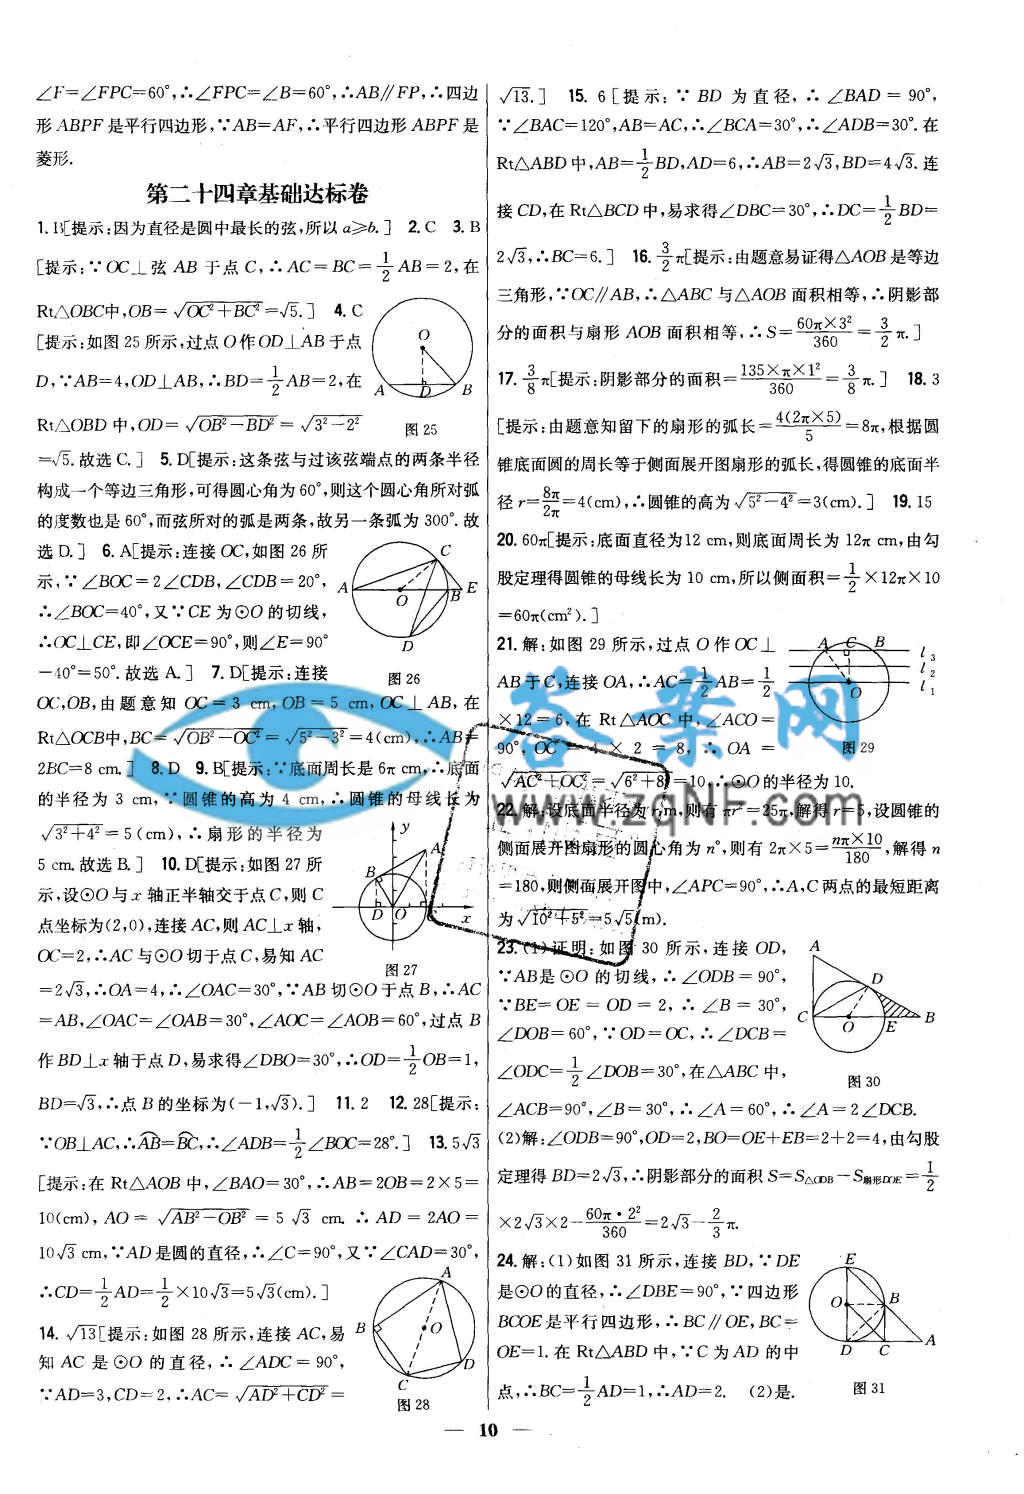 ∠F=∠FPC=60°,∴∠FPC=∠B=60°,∴AB∥FP,∴四边
形 ABPF 是平行四边形,∵AB=AF,∴平行四边形 ABPF 是
菱形.
第二十四章基础达标卷
1.B[提示:因为直径是圆中最长的弦,所以 a≥b.] 2.C 3.B
[提示:∵OC⊥弦 AB 于点 C,∴AC=BC=1/2 AB=2,在
Rt△OBC中,OB=√(OC²+BC²)=√5.] 4.C
[提示:如图 25 所示,过点 O 作 OD⊥AB 于点
D,∵AB=4,OD⊥AB,∴BD=1/2 AB=2,在
Rt△OBD 中,OD=√(OB²-BD²)=√(3²-2²)
=√5.故选 C.] 5.D[提示:这条弦与过该弦端点的两条半径
构成一个等边三角形,可得圆心角为 60°,则这个圆心角所对弧
的度数也是 60°,而弦所对的弧是两条,故另一条弧为 300°.故
选 D.] 6.A[提示:连接 OC,如图 26 所
示,∵∠BOC=2∠CDB,∠CDB=20°,
∴∠BOC=40°,又∵CE 为⊙O 的切线,
∴OC⊥CE,即∠OCE=90°,则∠E=90°
-40°=50°.故选 A.] 7.D[提示:连接
OC,OB,由题意知 OC=3 cm,OB=5 cm,OC⊥AB,在
Rt△OCB中,BC=√(OB²-OC²)=√(5²-3²)=4(cm),∴AB=
2BC=8 cm.] 8.D 9.B[提示:∵底面周长是 6π cm,∴底面
的半径为 3 cm,∵圆锥的高为 4 cm,∴圆锥的母线长为
√(3²+4²)=5(cm),∴扇形的半径为
5 cm.故选 B.] 10.D[提示:如图 27 所
示,设⊙O 与 x 轴正半轴交于点 C,则 C
点坐标为(2,0),连接 AC,则 AC⊥x 轴,
OC=2,∴AC 与⊙O 切于点 C,易知 AC
=2√3,∴OA=4,∴∠OAC=30°,∵AB 切⊙O 于点 B,∴AC
=AB,∠OAC=∠OAB=30°,∠AOC=∠AOB=60°,过点 B
作 BD⊥x 轴于点 D,易求得∠DBO=30°,∴OD=1/2 OB=1,
BD=√3,∴点 B 的坐标为(-1,√3).] 11.2 12.28[提示:
∵OB⊥AC,∴AB=BC,∴∠ADB=1/2∠BOC=28°.] 13.5√3
[提示:在 Rt△AOB 中,∠BAO=30°,∴AB=2OB=2×5=
10(cm),AO=√(AB²-OB²)=5√3 cm.∴AD=2AO=
10√3 cm,∵AD 是圆的直径,∴∠C=90°,又∵∠CAD=30°,
∴CD=1/2 AD=1/2×10√3=5√3(cm).]
14.√13[提示:如图 28 所示,连接 AC,易
知 AC 是⊙O 的直径,∴∠ADC=90°,
∵AD=3,CD=2,∴AC=√(AD²+CD²)=
O
A D B
图 25
C
A O B E
D
图 26
y
A
B
D O x
图 27
A
B O
D
C
图 28
√13.] 15.6[提示:∵BD 为直径,∴∠BAD=90°,
∵∠BAC=120°,AB=AC,∴∠BCA=30°,∴∠ADB=30°.在
Rt△ABD 中,AB=1/2 BD,AD=6,∴AB=2√3,BD=4√3.连
接 CD,在 Rt△BCD 中,易求得∠DBC=30°,∴DC=1/2 BD=
2√3,∴BC=6.] 16.3/2 π[提示:由题意易证得△AOB 是等边
三角形,∵OC∥AB,∴△ABC 与△AOB 面积相等,∴阴影部
分的面积与扇形 AOB 面积相等,∴S=60π×3²/360=3/2 π.]
17.3/8 π[提示:阴影部分的面积=135×π×1²/360=3/8 π.] 18.3
[提示:由题意知留下的扇形的弧长=4(2π×5)/5=8π,根据圆
锥底面圆的周长等于侧面展开图扇形的弧长,得圆锥的底面半
径 r=8π/2π=4(cm),∴圆锥的高为√(5²-4²)=3(cm).] 19.15
20.60π[提示:底面直径为12 cm,则底面周长为 12π cm,由勾
股定理得圆锥的母线长为 10 cm,所以侧面积=1/2×12π×10
=60π(cm²).]
21.解:如图 29 所示,过点 O 作 OC⊥
AB 于 C,连接 OA,∴AC=1/2 AB=1/2
×12=6,在 Rt△AOC 中,∠ACO=
90°,OC=4×2=8,∴OA=
√(AC²+OC²)=√(6²+8²)=10,∴⊙O 的半径为 10.
22.解:设底面半径为 r m,则有 πr²=25π,解得 r=5,设圆锥的
侧面展开图扇形的圆心角为 n°,则有 2π×5=nπ×10/180,解得 n
=180,则侧面展开图中,∠APC=90°,∴A,C 两点的最短距离
为√(10²+5²)=5√5(m).
23.(1)证明:如图 30 所示,连接 OD,
∵AB是⊙O 的切线,∴∠ODB=90°,
∵BE=OE=OD=2,∴∠B=30°,
∠DOB=60°,∵OD=OC,∴∠DCB=
∠ODC=1/2∠DOB=30°,在△ABC 中,
∠ACB=90°,∠B=30°,∴∠A=60°,∴∠A=2∠DCB.
(2)解:∠ODB=90°,OD=2,BO=OE+EB=2+2=4,由勾股
定理得 BD=2√3,∴阴影部分的面积 S=S△ODB-S扇形DOE=1/2
×2√3×2-60π·2²/360=2√3-2/3 π.
24.解:(1)如图 31 所示,连接 BD,∵DE
是⊙O 的直径,∴∠DBE=90°,∵四边形
BCOE 是平行四边形,∴BC∥OE,BC=
OE=1.在 Rt△ABD 中,∵C 为 AD 的中
点,∴BC=1/2 AD=1,∴AD=2. (2)是.
A C B
l3
l2
l1
O
图 29
A
D
C O E B
图 30
E
O B
D C A
图 31
答案网
www.zqNF.com
— 10 —